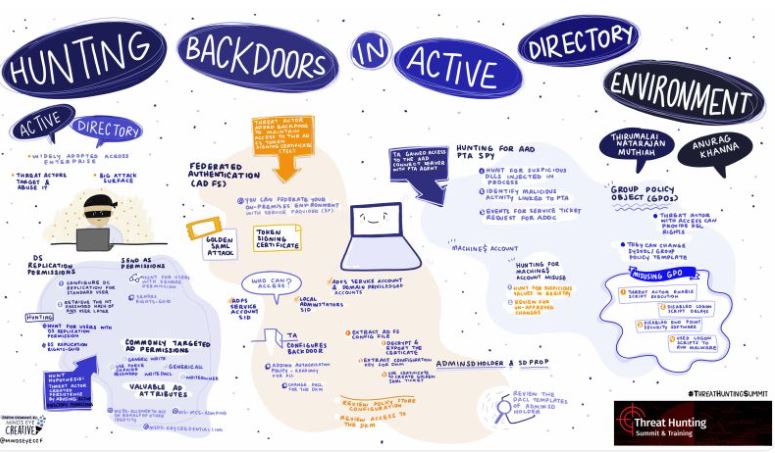 HUNTING
BACKDOORS
IN
ACTIVE
DIRECTORY
ENVIRONMENT
THIRUMALAI
NATARAJAN
MUTHIAH
ANURAG
KHANNA
ACTIVE
DIRECTORY
WIDELY ADOPTED ACROSS
ENTERPRISE
THREAT ACTORS
TARGET &
ABUSE IT
BIG ATTACK
SURFACE
DS
REPLICATION
PERMISSIONS
CONFIGURE DC
REPLICATION FOR
STANDARD USER
RETRIEVE THE NT
USER LATER
SEND AS
PERMISSIONS
HUNT FOR USERS
HUNTING
HUNT FOR USERS WITH
DS REPLICATION
PERMISSION
DS REPLICATION
RIGHTS-GUID
HUNT
HYPOTHESIS:
THREAT ACTOR
CREATED
PERSISTENCE
BY ADDING
COMMONLY TARGETED
AD PERMISSIONS
GENERIC WRITE
GENERIC ALL
WRITE DACL
WRITEOWNER
VALUABLE AD
ATTRIBUTES
THREAT ACTOR
ADDED BACKDOOR
TO MAINTAIN
ACCESS TO THE AD
FS TOKEN
SIGNING CERTIFICATE
(TSC)
FEDERATED
AUTHENTICATION
(AD FS)
YOU CAN FEDERATE YOUR
ON-PREMISES ENVIRONMENT
WITH SERVICE PROVIDER (SP)
GOLDEN
SAML
ATTACK
TOKEN
SIGNING
CERTIFICATE
WHO CAN
ACCESS?
ADFS
SERVICE
ACCOUNT
SID
LOCAL
ADMINISTRATORS
SID
ADFS SERVICE ACCOUNT
& DOMAIN PRIVILEGED
ACCOUNTS
TA
CONFIGURES
BACKDOOR
ADDING AUTHORIZATION
FOR THE DKM
EXTRACT AD FS
CONFIG FILE
DECRYPT &
EXPORT THE
EXTRACT CONFIGURATION
KEY FROM DKM
USE CERTIFICATE
TO CREATE GOLDEN
SAML TICKETS
REVIEW POLICY STORE
CONFIGURATION
REVIEW ACCESS TO
THE DKM
TA GAINED ACCESS
TO THE AAD
CONNECT SERVER
WITH PTA AGENT
HUNTING FOR AAD
PTA SPY
HUNT FOR SUSPICIOUS
DLLS INJECTED IN
PROCESS
IDENTIFY MALICIOUS
ACTIVITY LINKED TO PTA
EVENTS FOR SERVICE TICKET
REQUEST FOR
MACHINE$ ACCOUNT
HUNTING FOR
MACHINE$
ACCOUNT MISUSE
HUNT FOR SUSPICIOUS
VALUES IN REGISTRY
REVIEW FOR
UN-APPROVED
CHANGES
ADMINSDHOLDER & SDPROP
REVIEW THE
DACL TEMPLATES
OF ADMINSD
HOLDER
GROUP POLICY
OBJECT (GPOs)
THREAT ACTOR
WITH ACCESS CAN
PROVIDE DSL
RIGHTS
THEY CAN CHANGE
SYSVOL/GROUP
POLICY TEMPLATE
MISUSING GPO
THREAT ACTOR ENABLE
SCRIPT EXECUTION
DISABLED LOGON
SCRIPT DELAYS
DISABLED END POINT
SECURITY SOFTWARE
USED LOGON
SCRIPTS TO
RUN MALWARE
#THREATHUNTINGSUMMIT
Threat Hunting
Summit & Training
MINDS EYE
CREATIVE
@MINDSEYECCF